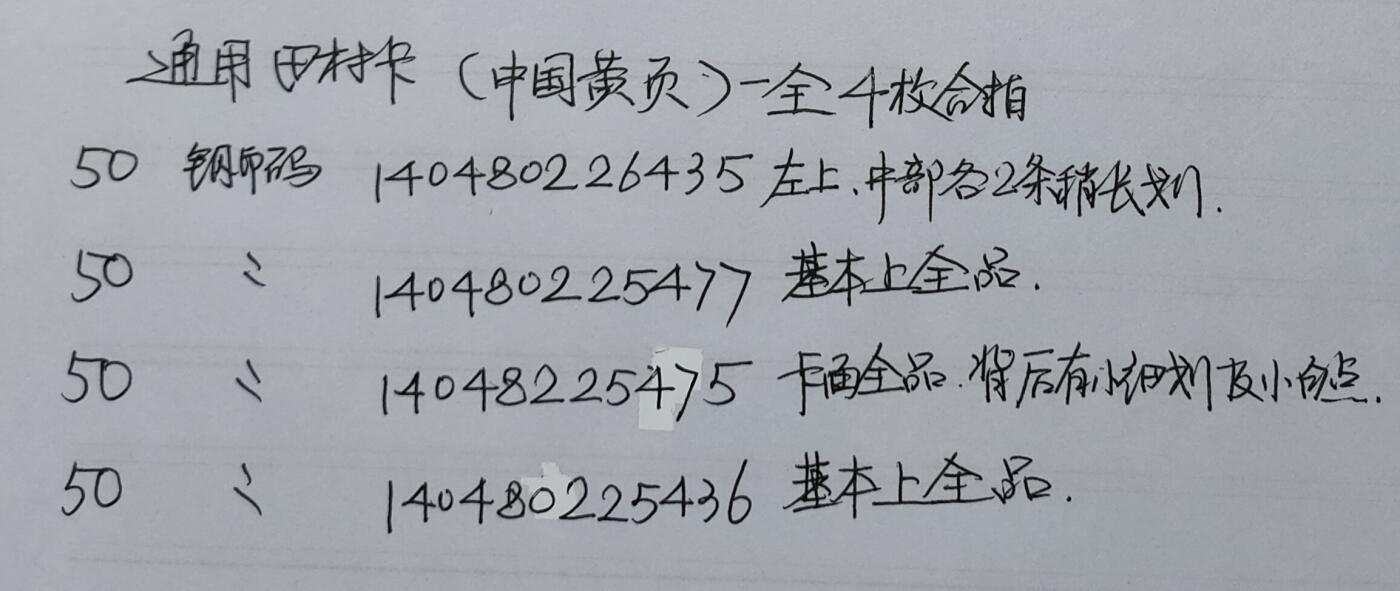 通用田村卡(中国黄页)一全4枚合拍
50 钢印码 140480226435 左上、中部各2条稍长划.
50 〃 140480225477 基本上全品.
50 〃 14048225475 卡面全品.背后有小细划及小白点.
50 〃 140480225436 基本上全品.